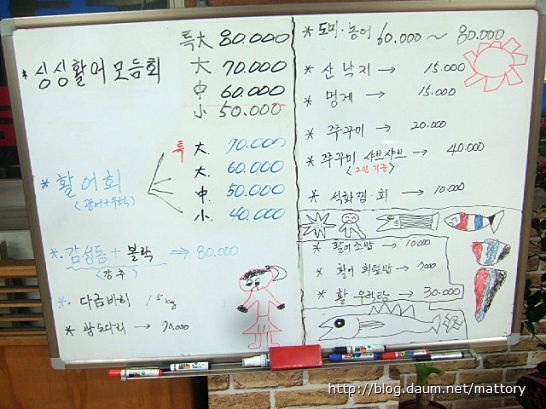 * 싱싱활어모듬회
특大 80.000
大 70.000
中 60.000
小 50.000
* 활어회
<광어+우럭>
특 大. 70.000
大. 60.000
中. 50.000
小. 40.000
*. 감성돔 + 볼락 ⇒ 80.000
<강추>
다금바리 1.5kg
→ 70.000
* 도미·농어 60.000 ~ 80.000
* 산낙지 → 15.000
* 멍게 → 15.000
* 쭈꾸미 → 20.000
* 쭈꾸미 샤브샤브 → 40.000
<2인 기준>
* 석화찜·회 → 10.000
* 활어초밥 → 10000
* 활어 회덮밥 → 7000
* 활 우럭탕 → 30.000
http://blog.daum.net/mattory